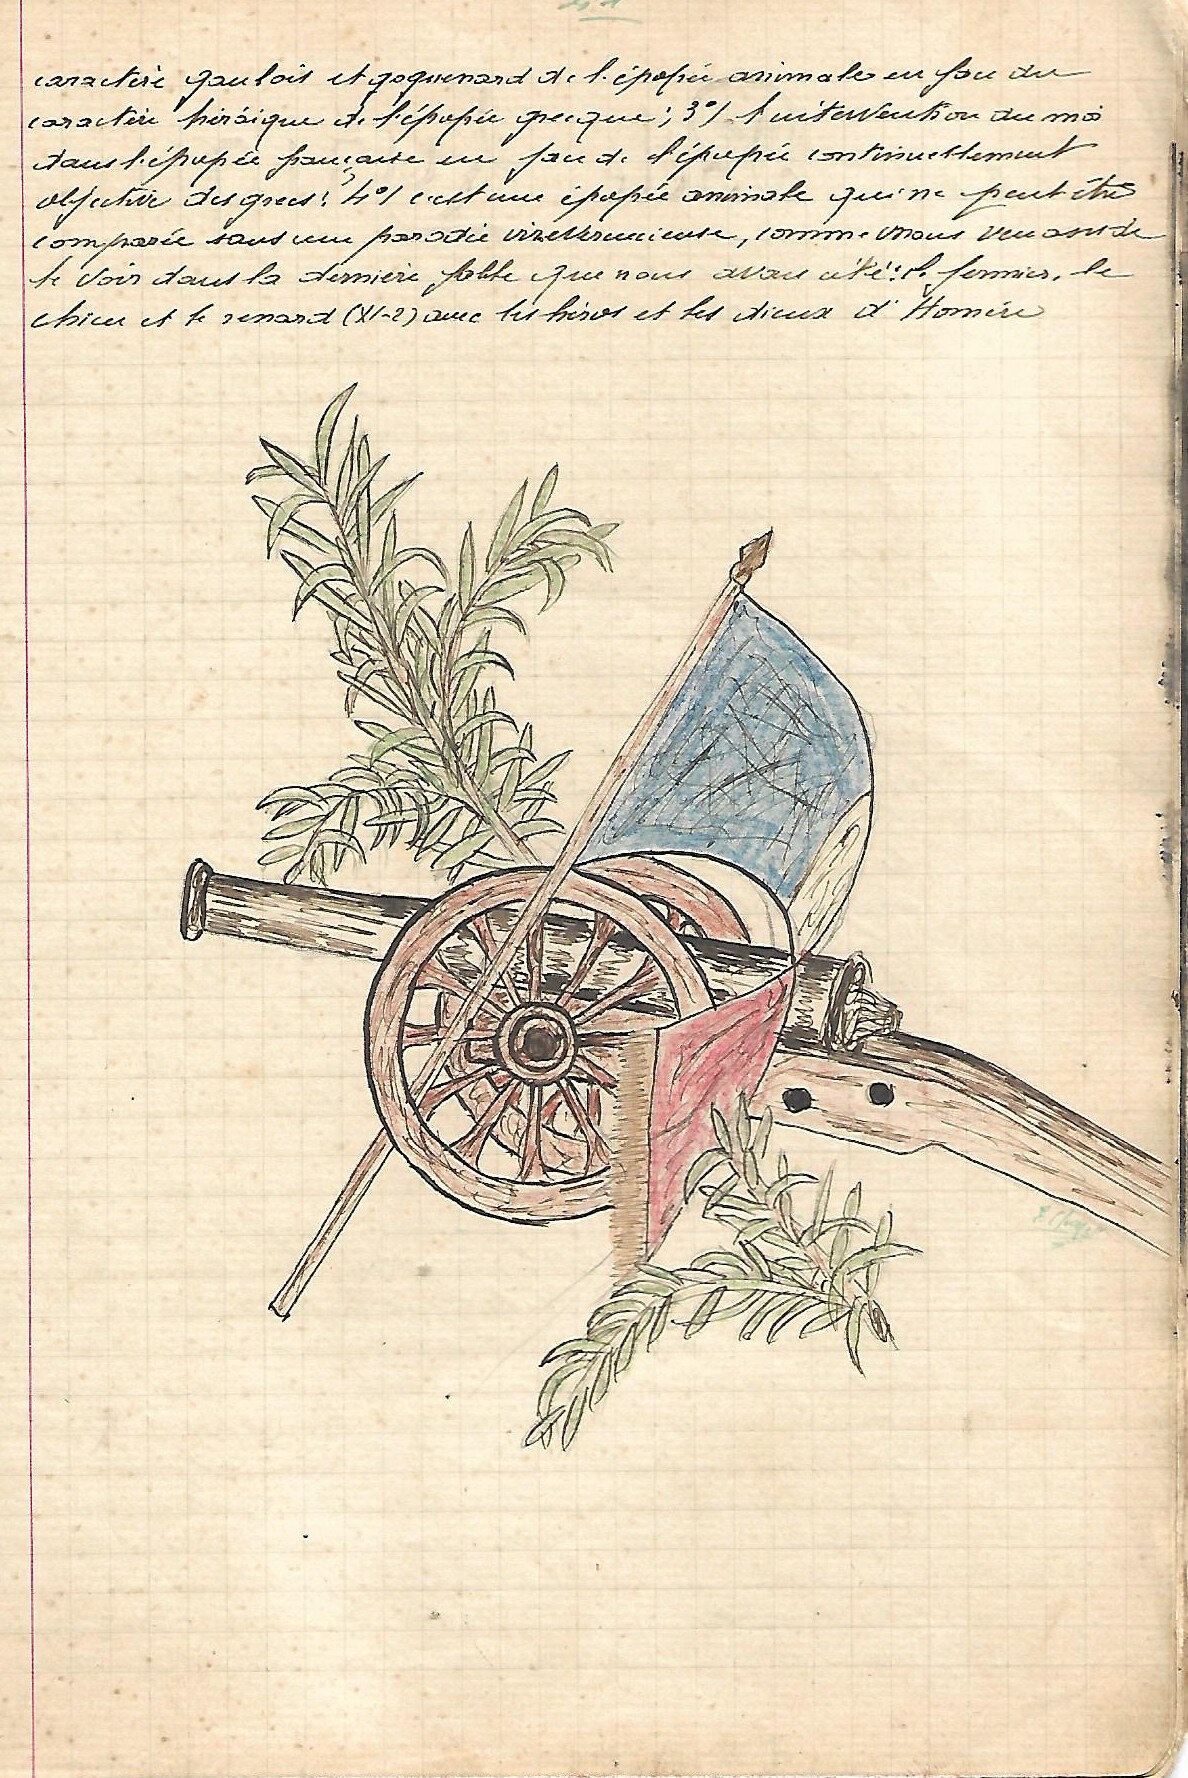 caractère gaulois et goguenard de l'épopée animale en face du
caractère héroïque de l'épopée grecque; 3°/ l'intervention du moi
dans l'épopée française en face de l'épopée continuellement
objective des grecs; 4°/ c'est une épopée animale qui ne peut être
comparée sans une parodie irrévérencieuse, comme nous venons de
le voir dans la dernière fable que nous avons cité: le fermier, le
chien et le renard (XI-2) avec les héros et les dieux d'Homère